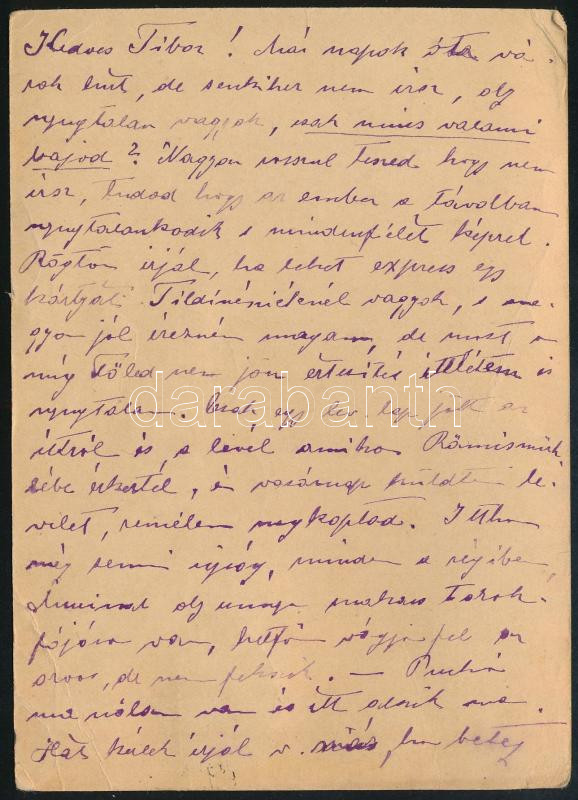 Kedves Tibor! Már napok óta vá-
rok hírt, de senkihez nem írsz, oly
nyugtalan vagyok, csak nincs valami
bajod? Nagyon rosszul teszed hogy nem
írsz, tudod hogy az ember a távolban
nyugtalankodik s mindenfélét képzel.
Rögtön írjál, ha lehet express egy
kártyát. vagyok, s na-
gyon jól érezném magam, de most a
míg Tőled nem jön értesítés ittlétem is
nyugtalan. Csak egy lev. lap jött az
útról és a level amikor
érkeztél, én vasárnap küldtem le-
velet, remélem megkaptad. Itthon
még semmi ujság, minden a régiben,
oly unga makacs torok-
fájása van, hétfőn vágja fel az
orvos, de nem fekszik. —
ma nálam van és itt alszik ma.
Hát kérlek írjál v. más, ha beteg
darabanth